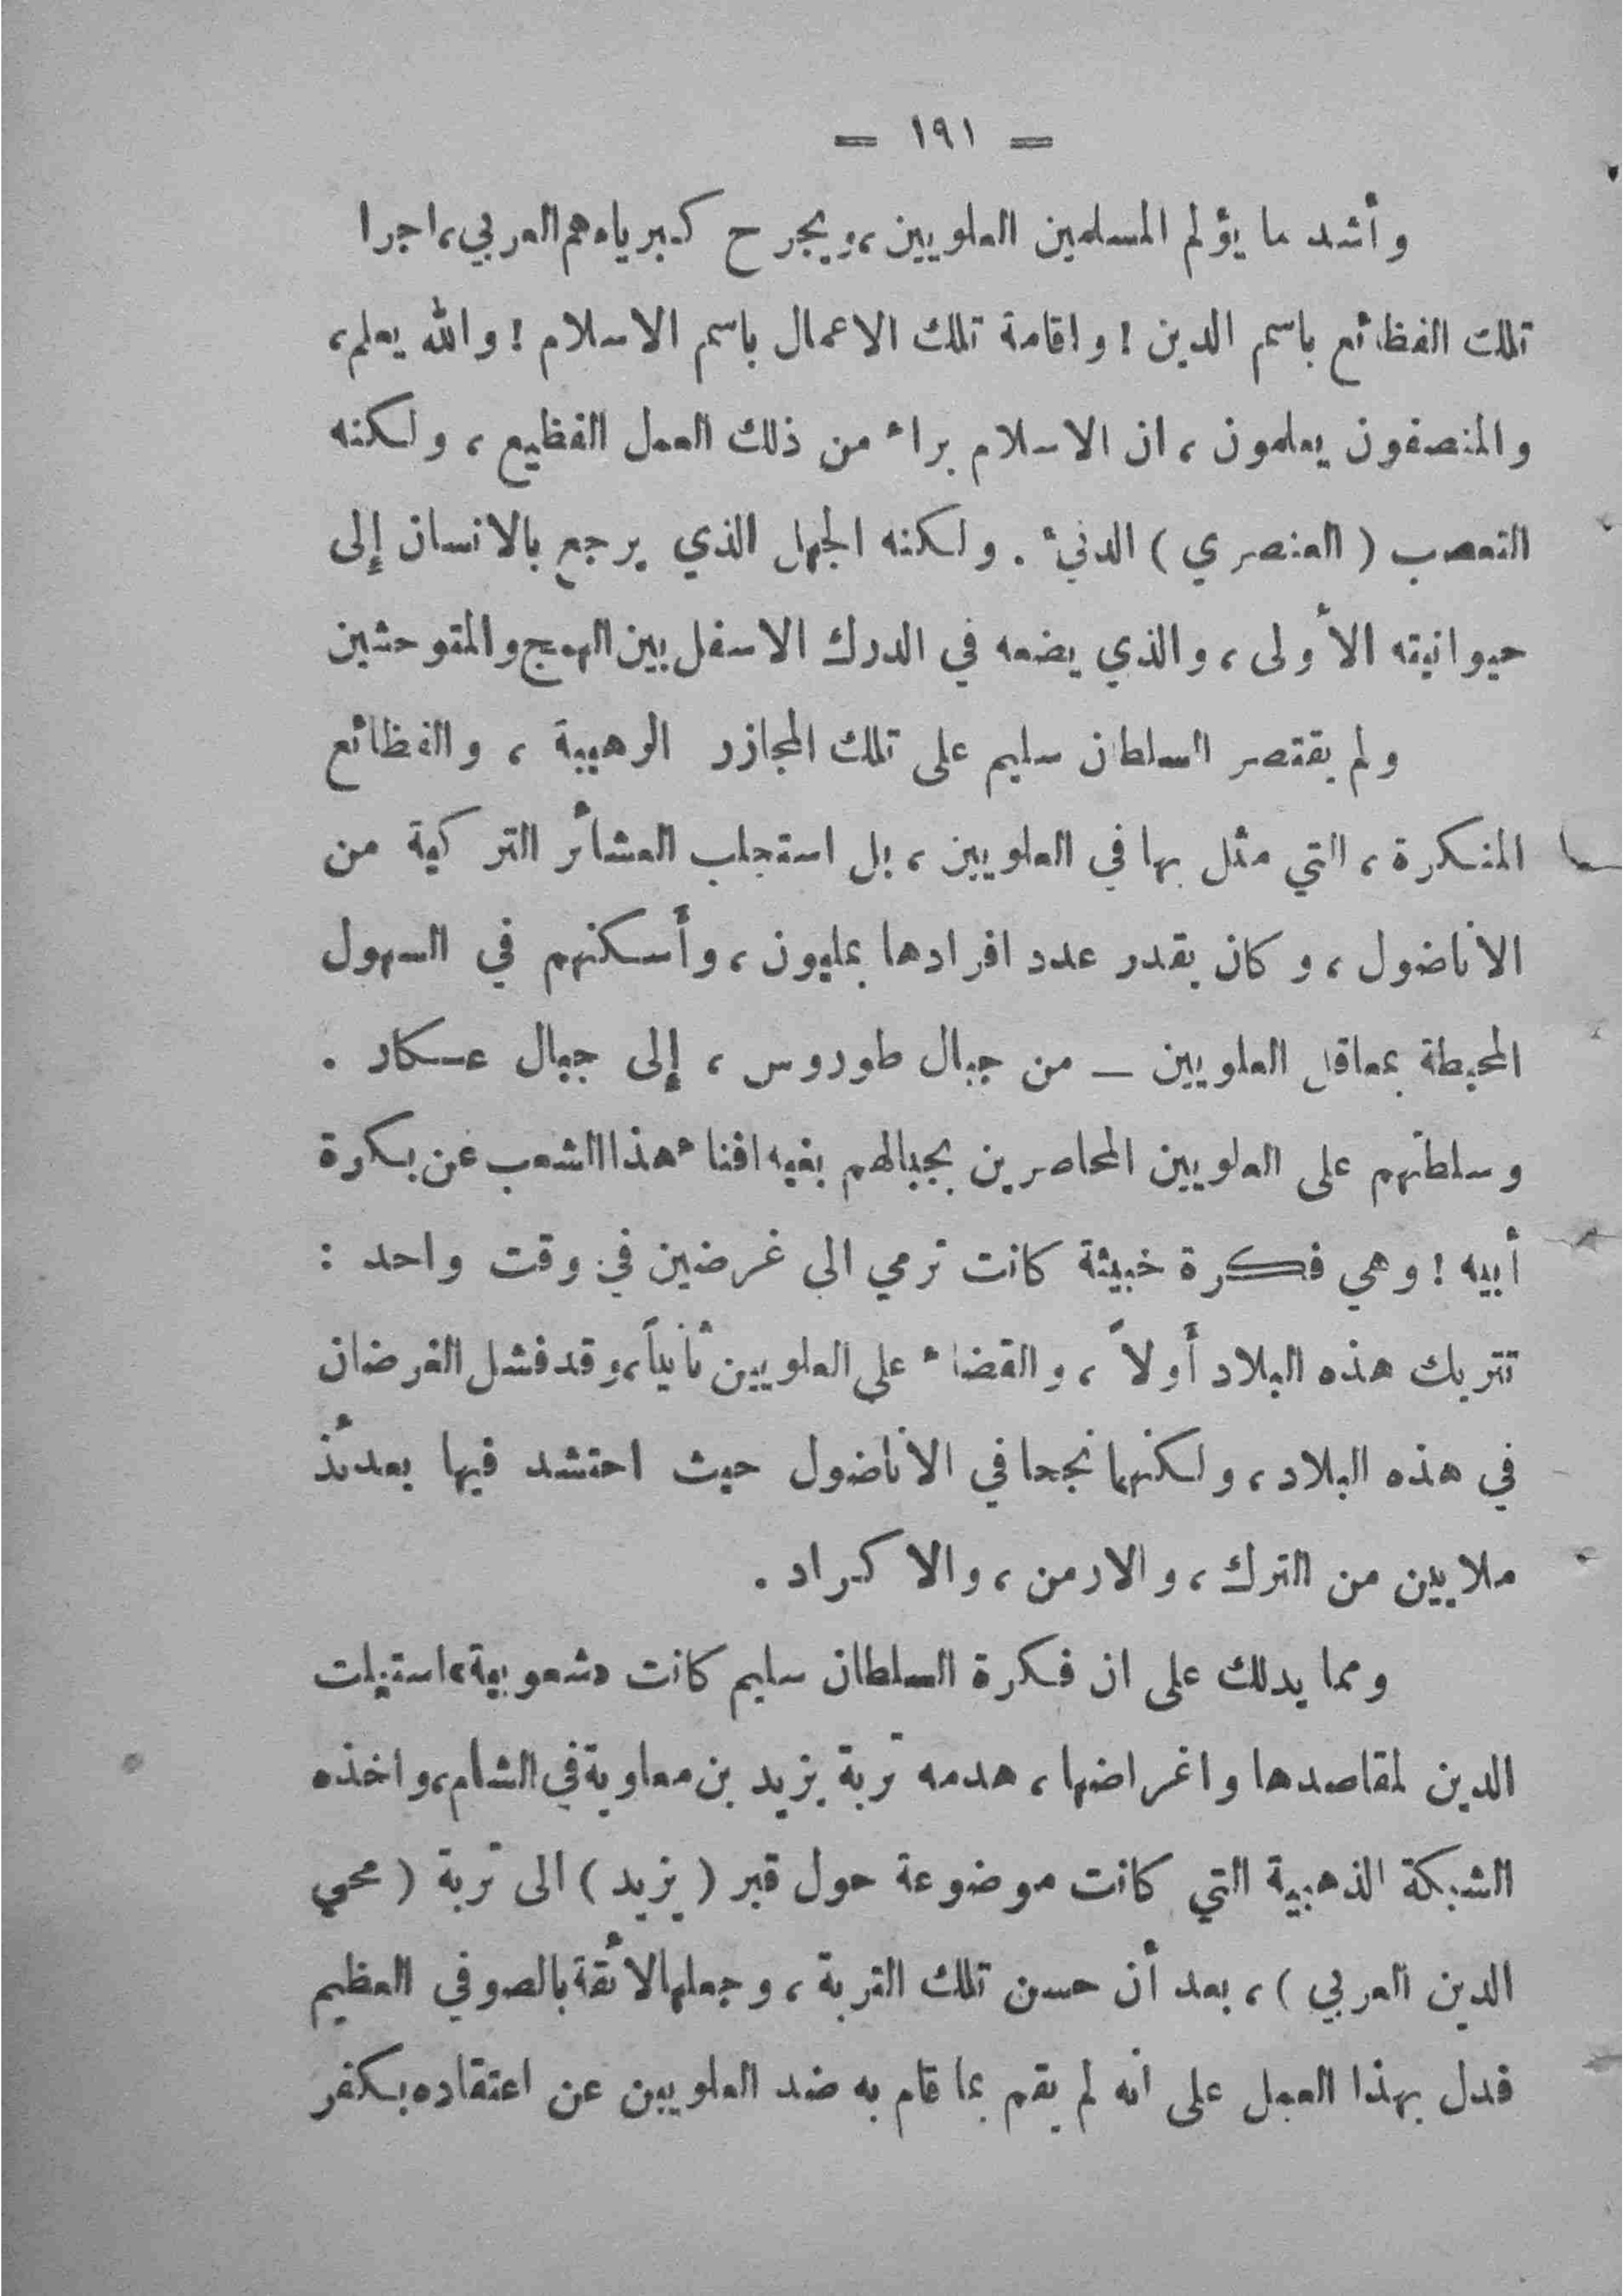 = ١٩١ =
وأشد ما يؤلم المسلمين العلويين، ويجرح كبرياءهم العربي، اجرا
تلك الفظائع باسم الدين ! واقامة تلك الاعمال باسم الاسلام ! والله يعلم،
والمنصفون يعلمون، ان الاسلام براء من ذلك العمل الفظيع، ولكنه
التعصب ( العنصري ) الدنيء . ولكنه الجهل الذي يرجع بالانسان إلى
حيوانيته الأولى، والذي يضعه في الدرك الاسفل بين الهمج والمتوحشين
ولم يقتصر السلطان سليم على تلك المجازر الرهيبة، والفظائع
المنكرة، التي مثل بها في العلويين، بل استجلب العشائر التركية من
الاناضول، وكان يقدر عدد افرادها بمليون، وأسكنهم في السهول
المحيطة بمعاقل العلويين – من جبال طوروس، إلى جبال عكار .
وسلطتهم على العلويين المحاصرين بجبالهم بغيه افناء هذا الشعب عن بكرة
أبيه ! وهي فكرة خبيثة كانت ترمي الى غرضين في وقت واحد :
تتريك هذه البلاد أولاً، والقضاء على العلويين ثانياً، وقد فشل الغرضان
في هذه البلاد، ولكنهما نجحا في الاناضول حيث احتشد فيها بعدئذ
ملايين من الترك، والارمن، والاكراد .
ومما يدلك على ان فكرة السلطان سليم كانت «شعوبية» استغلت
الدين لمقاصدها واغراضها، هدمه تربة يزيد بن معاوية في الشام، واخذه
الشبكة الذهبية التي كانت موضوعة حول قبر ( يزيد ) الى تربة ( محي
الدين العربي )، بعد أن حسن تلك التربة، وجعلها لائقة بالصوفي العظيم
فدل بهذا العمل على انه لم يقم بما قام به ضد العلويين عن اعتقاده بكفر